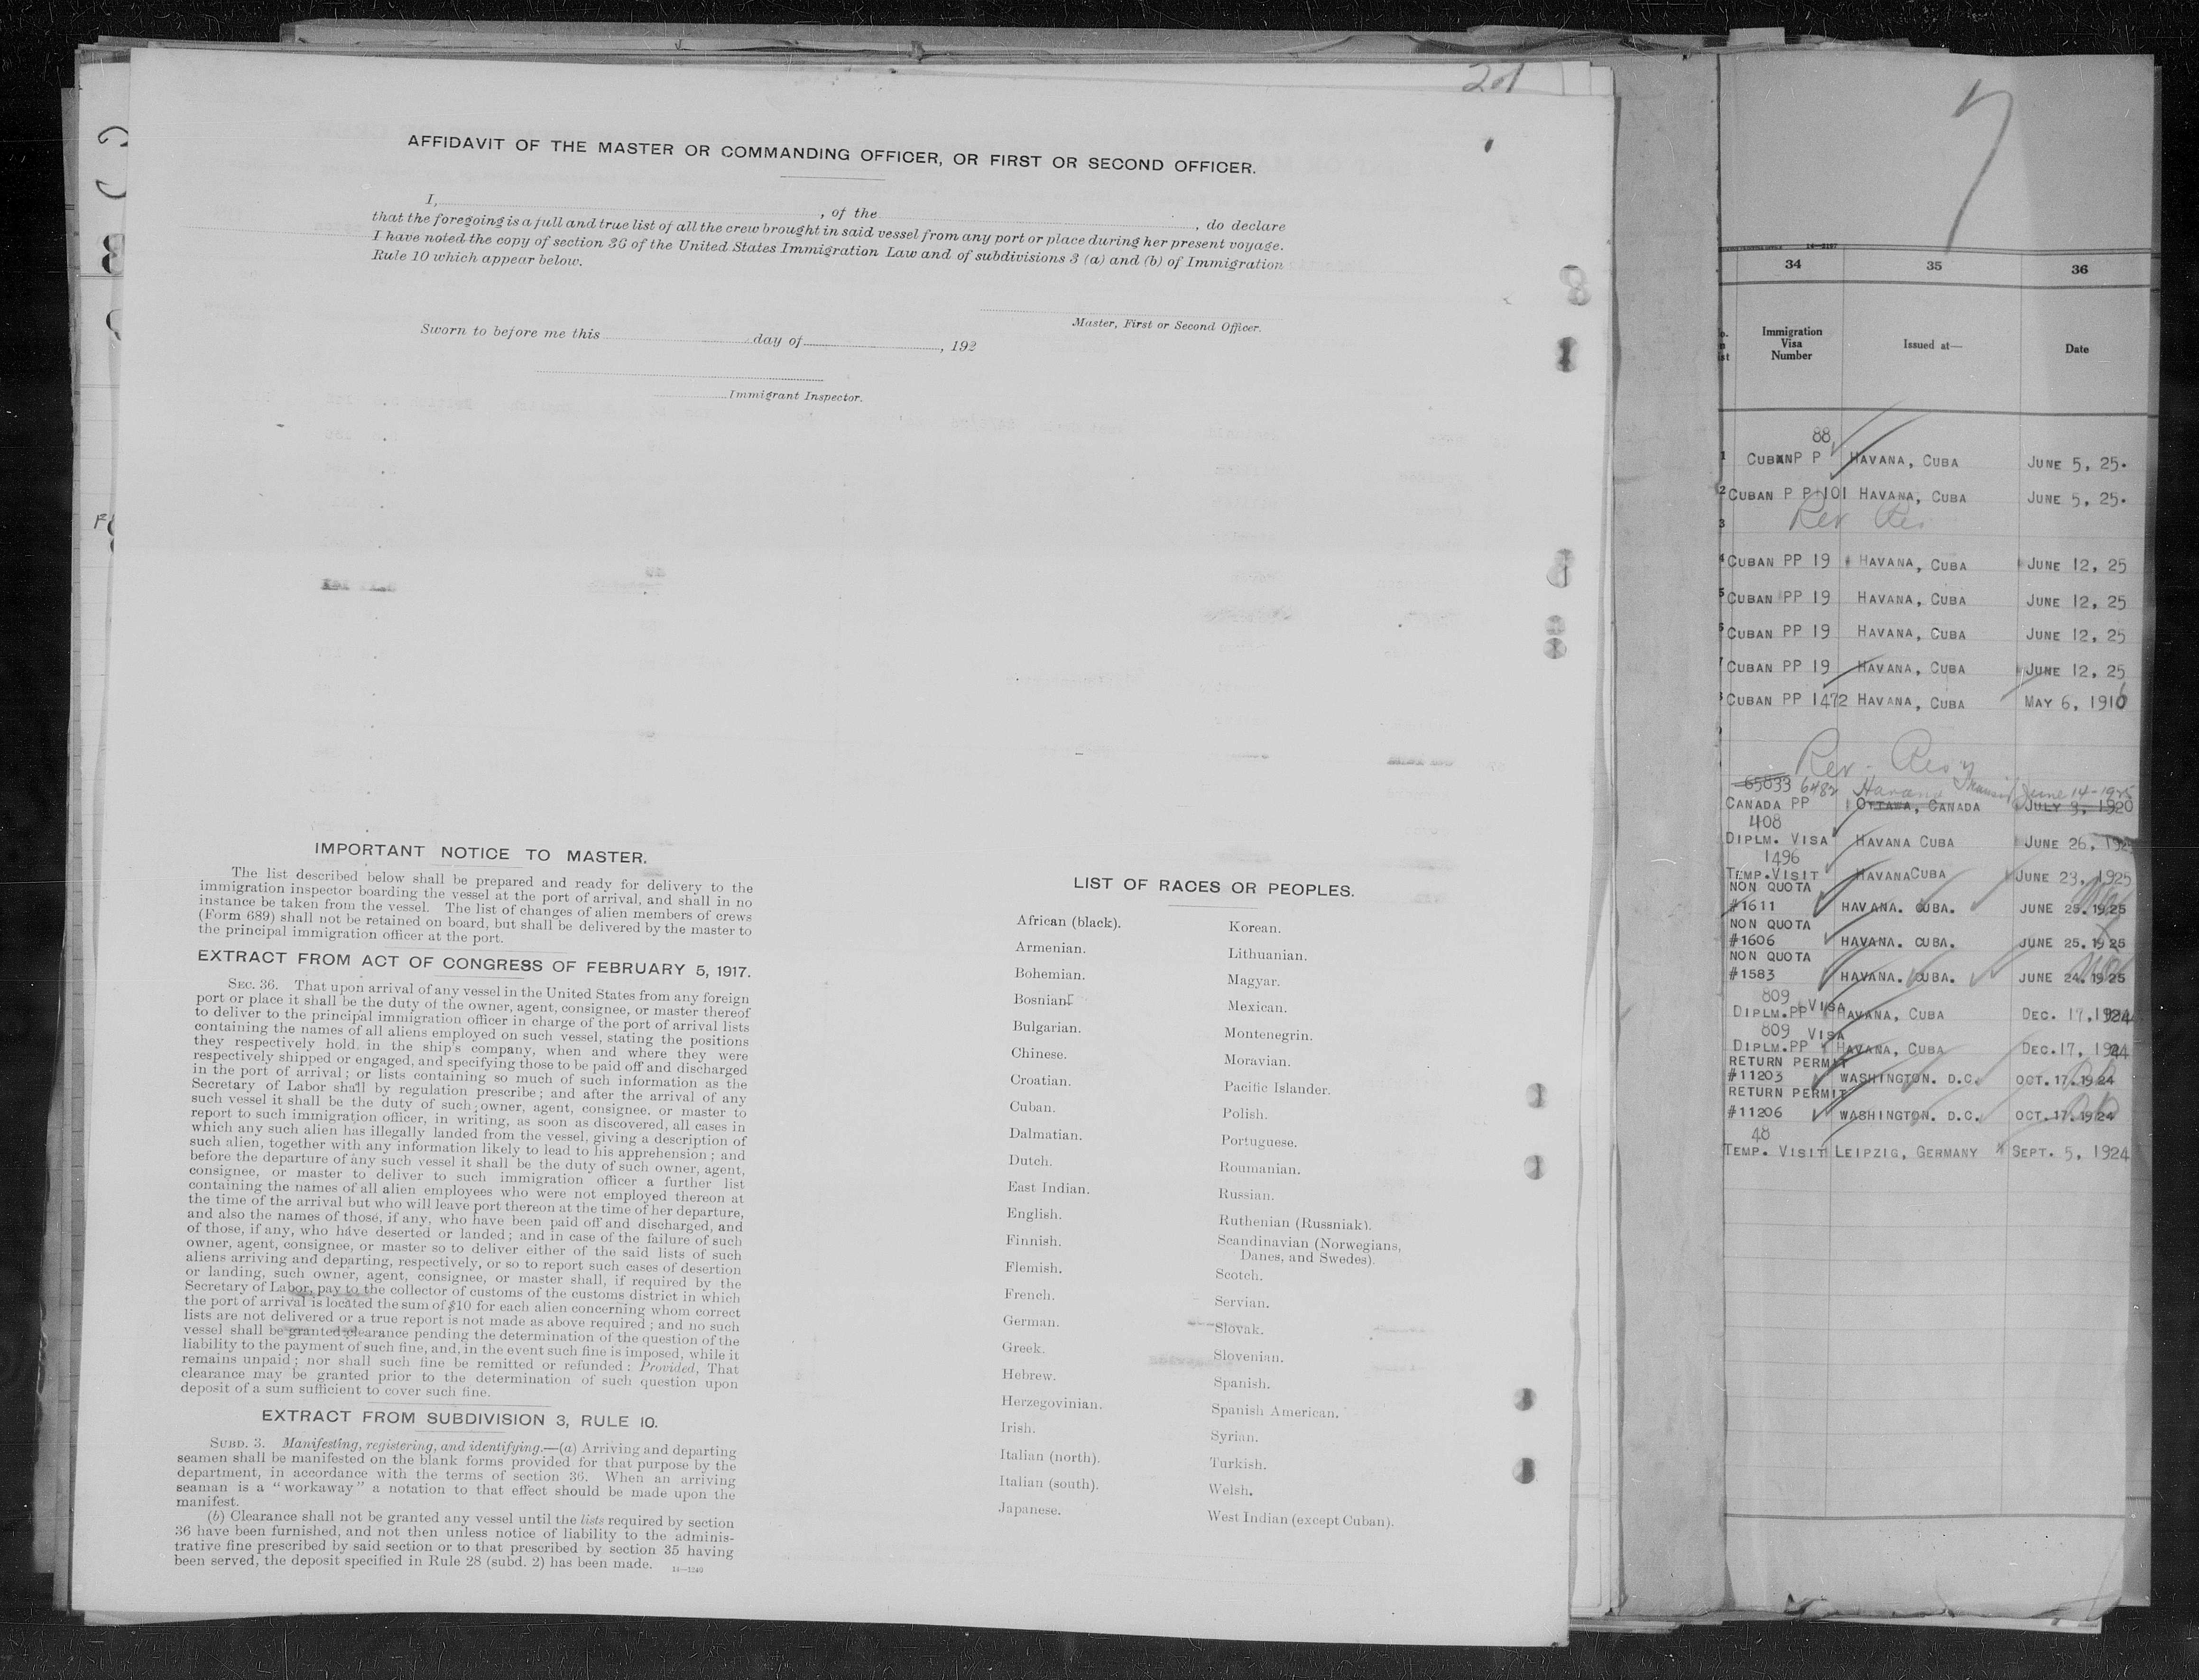 201
AFFIDAVIT OF THE MASTER OR COMMANDING OFFICER, OR FIRST OR SECOND OFFICER.
I, , of the , do declare
that the foregoing is a full and true list of all the crew brought in said vessel from any port or place during her present voyage.
I have noted the copy of section 36 of the United States Immigration Law and of subdivisions 3 (a) and (b) of Immigration
Rule 10 which appear below.
Master, First or Second Officer.
Sworn to before me this day of , 192
Immigrant Inspector.
IMPORTANT NOTICE TO MASTER.
The list described below shall be prepared and ready for delivery to the
immigration inspector boarding the vessel at the port of arrival, and shall in no
instance be taken from the vessel. The list of changes of alien members of crews
(Form 689) shall not be retained on board, but shall be delivered by the master to
the principal immigration officer at the port.
EXTRACT FROM ACT OF CONGRESS OF FEBRUARY 5, 1917.
SEC. 36. That upon arrival of any vessel in the United States from any foreign
port or place it shall be the duty of the owner, agent, consignee, or master thereof
to deliver to the principal immigration officer in charge of the port of arrival lists
containing the names of all aliens employed on such vessel, stating the positions
they respectively hold in the ship's company, when and where they were
respectively shipped or engaged, and specifying those to be paid off and discharged
in the port of arrival; or lists containing so much of such information as the
Secretary of Labor shall by regulation prescribe; and after the arrival of any
such vessel it shall be the duty of such owner, agent, consignee, or master to
report to such immigration officer, in writing, as soon as discovered, all cases in
which any such alien has illegally landed from the vessel, giving a description of
such alien, together with any information likely to lead to his apprehension; and
before the departure of any such vessel it shall be the duty of such owner, agent,
consignee, or master to deliver to such immigration officer a further list
containing the names of all alien employees who were not employed thereon at
the time of the arrival but who will leave port thereon at the time of her departure,
and also the names of those, if any, who have been paid off and discharged, and
of those, if any, who have deserted or landed; and in case of the failure of such
owner, agent, consignee, or master so to deliver either of the said lists of such
aliens arriving and departing, respectively, or so to report such cases of desertion
or landing, such owner, agent, consignee, or master shall, if required by the
Secretary of Labor, pay to the collector of customs of the customs district in which
the port of arrival is located the sum of $10 for each alien concerning whom correct
lists are not delivered or a true report is not made as above required; and no such
vessel shall be granted clearance pending the determination of the question of the
liability to the payment of such fine, and, in the event such fine is imposed, while it
remains unpaid; nor shall such fine be remitted or refunded: Provided, That
clearance may be granted prior to the determination of such question upon
deposit of a sum sufficient to cover such fine.
EXTRACT FROM SUBDIVISION 3, RULE 10.
SUBD. 3. Manifesting, registering, and identifying.—(a) Arriving and departing
seamen shall be manifested on the blank forms provided for that purpose by the
department, in accordance with the terms of section 36. When an arriving
seaman is a "workaway" a notation to that effect should be made upon the
manifest.
(b) Clearance shall not be granted any vessel until the lists required by section
36 have been furnished, and not then unless notice of liability to the adminis-
trative fine prescribed by said section or to that prescribed by section 35 having
been served, the deposit specified in Rule 28 (subd. 2) has been made.
14—1240
LIST OF RACES OR PEOPLES.
African (black).
Armenian.
Bohemian.
Bosnian.
Bulgarian.
Chinese.
Croatian.
Cuban.
Dalmatian.
Dutch.
East Indian.
English.
Finnish.
Flemish.
French.
German.
Greek.
Hebrew.
Herzegovinian.
Irish.
Italian (north).
Italian (south).
Japanese.
Korean.
Lithuanian.
Magyar.
Mexican.
Montenegrin.
Moravian.
Pacific Islander.
Polish.
Portuguese.
Roumanian.
Russian.
Ruthenian (Russniak).
Scandinavian (Norwegians,
Danes, and Swedes).
Scotch.
Servian.
Slovak.
Slovenian.
Spanish.
Spanish American.
Syrian.
Turkish.
Welsh.
West Indian (except Cuban).
7
34 35 36
Immigration
Visa
Number
Issued at—
Date
88
1 CUBAN P P HAVANA, CUBA JUNE 5, 25.
2 CUBAN P P 101 HAVANA, CUBA JUNE 5, 25.
3 Rev Res
4 CUBAN PP 19 HAVANA, CUBA JUNE 12, 25
5 CUBAN PP 19 HAVANA, CUBA JUNE 12, 25
6 CUBAN PP 19 HAVANA, CUBA JUNE 12, 25
7 CUBAN PP 19 HAVANA, CUBA JUNE 12, 25
CUBAN PP 1472 HAVANA, CUBA MAY 6, 1916
Rev - Res
65033 6482 Havana Transit June 14-1925
CANADA PP OTTAWA, CANADA JULY 3, 1920
408
DIPLM. VISA HAVANA CUBA JUNE 26, 1925
1496
TEMP. VISIT HAVANA CUBA JUNE 23, 1925
NON QUOTA
#1611 HAVANA. CUBA. JUNE 25. 1925
NON QUOTA
#1606 HAVANA. CUBA. JUNE 25. 1925
NON QUOTA
#1583 HAVANA. CUBA. JUNE 24. 1925
809 VISA
DIPLM. PP HAVANA, CUBA DEC. 17, 1924
809 VISA
DIPLM. PP HAVANA, CUBA DEC. 17, 1924
RETURN PERMIT
#11203 WASHINGTON. D.C. OCT. 17. 1924
RETURN PERMIT
#11206 WASHINGTON. D.C. OCT. 17. 1924
48
TEMP. VISIT LEIPZIG, GERMANY SEPT. 5, 1924